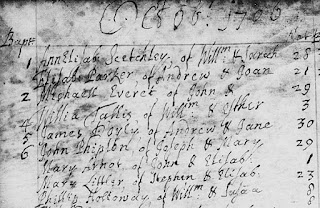 Octob: 1726
Bapt
1 AnnElisab Sketchley of Willm & Sarah 28
Elisab Parker of Andrew & Joan 21
2 Michaell Everet of John & 29
4 Willia Tallis of Willm: & Esther 3
5 James Doyly of Andrew & Jane 30
6 John Shipton of Joseph & Mary 29
Mary Arnot of John & Elisab. 1
Mary Littler of Stephen & Elisab. 23
Phillip Holloway of Willm & Susaa 8